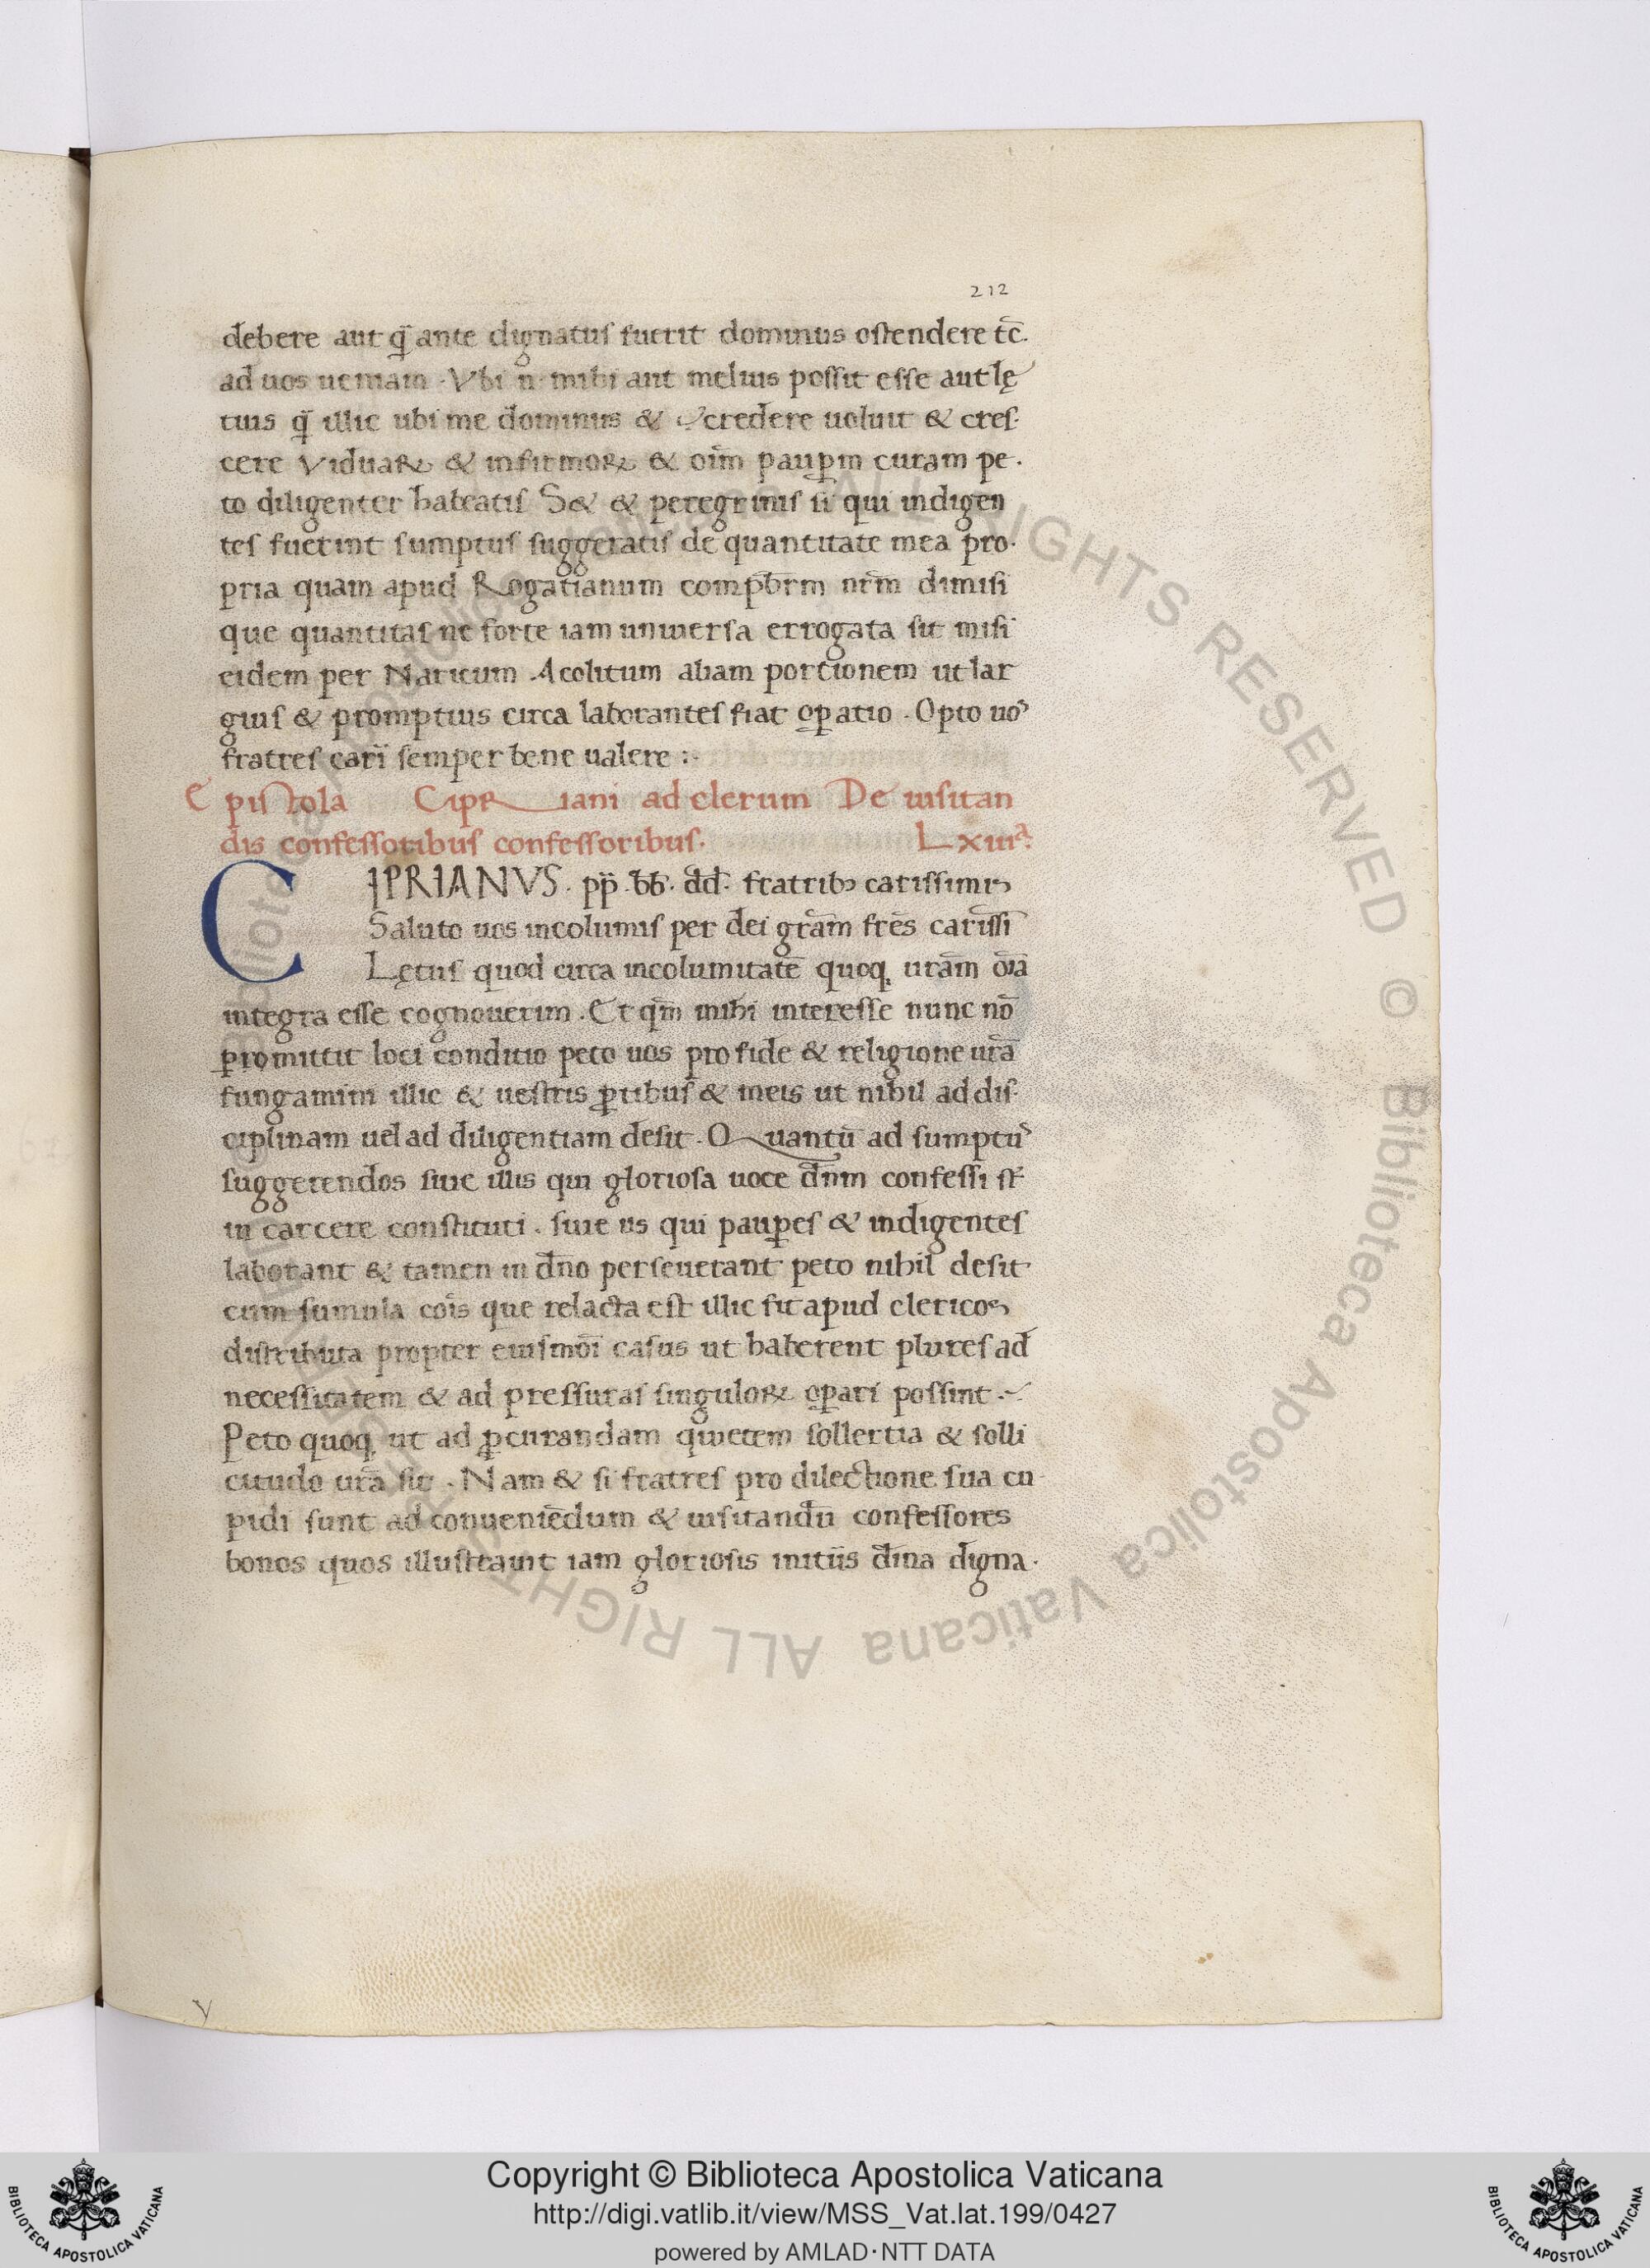 212
debere aut q̃ ante dignatus fuerit dominus ostendere tc̃.
ad uos ueniam . Vbi n. mihi aut melius possit esse aut lę
tius q̃ illic ubi me dominus & credere uoluit & cres-
cere Viduaꝝ & infirmoꝝ & oīm pauꝑm curam pe.
to diligenter habeatis S& & peregrinis si qui indigen
tes fuerint sumptus suggeratis de quantitate mea pro-
pria quam apud Rogatianum comp̄brm nr̄m dimisi
que quantitas ne forte iam uniuersa errogata sit misi
eidem per Naricum Acolitum aliam portionem ut lar
gius & promptius circa laborantes fiat oꝑatio . Opto uos
fratres carī semper bene ualere :-
Epistola Cipriani ad clerum De uisitan
dis confessoribus confessoribus. Lxiiiª.
CIPRIANVS . pp̄ . b̄b̄ . d̄d̄ . fratribꝫ carissimis
Saluto uos incolumis per dei gr̄am fr̄es carissī
Lętus quod circa incolumitatē quoq, ur̄am oīa
integra esse cognouerim . Et qm̄ mihi interesse nunc nō
ꝑromittit loci conditio peto uos pro fide & religione ur̄a
fungamini illic & uestris ꝑtibus & meis ut nihil ad dis-
ciplinam uel ad diligentiam desit . Quantū ad sumptus
suggerendos siue illis qui gloriosa uoce dn̄m confessi st̄
in carcere constituti . siue iis qui pauꝑes & indigentes
laborant & tamen in dn̄o perseuerant peto nihil desit
cum sumula coīs que relacta est illic sit apud clericos
distributa propter eiusmoī casus ut haberent plures ad
necessitatem & ad pressuras singuloꝝ oꝑari possint .
Peto quoq, ut ad ꝓcurandam quietem sollertia & solli
citudo ur̄a sit . Nam & si fratres pro dilectione sua cu
pidi sunt ad conueniēdum & uisitandū confessores
bonos quos illustrauit iam gloriosis initiis diīna digna-
y
Biblioteca Apostolica Vaticana ALL RIGHTS RESERVED © Biblioteca Apostolica Vaticana ALL RIGHTS RESERVED ©
Copyright © Biblioteca Apostolica Vaticana
http://digi.vatlib.it/view/MSS_Vat.lat.199/0427
powered by AMLAD·NTT DATA
BIBLIOTECA APOSTOLICA VATICANA
BIBLIOTECA APOSTOLICA VATICANA